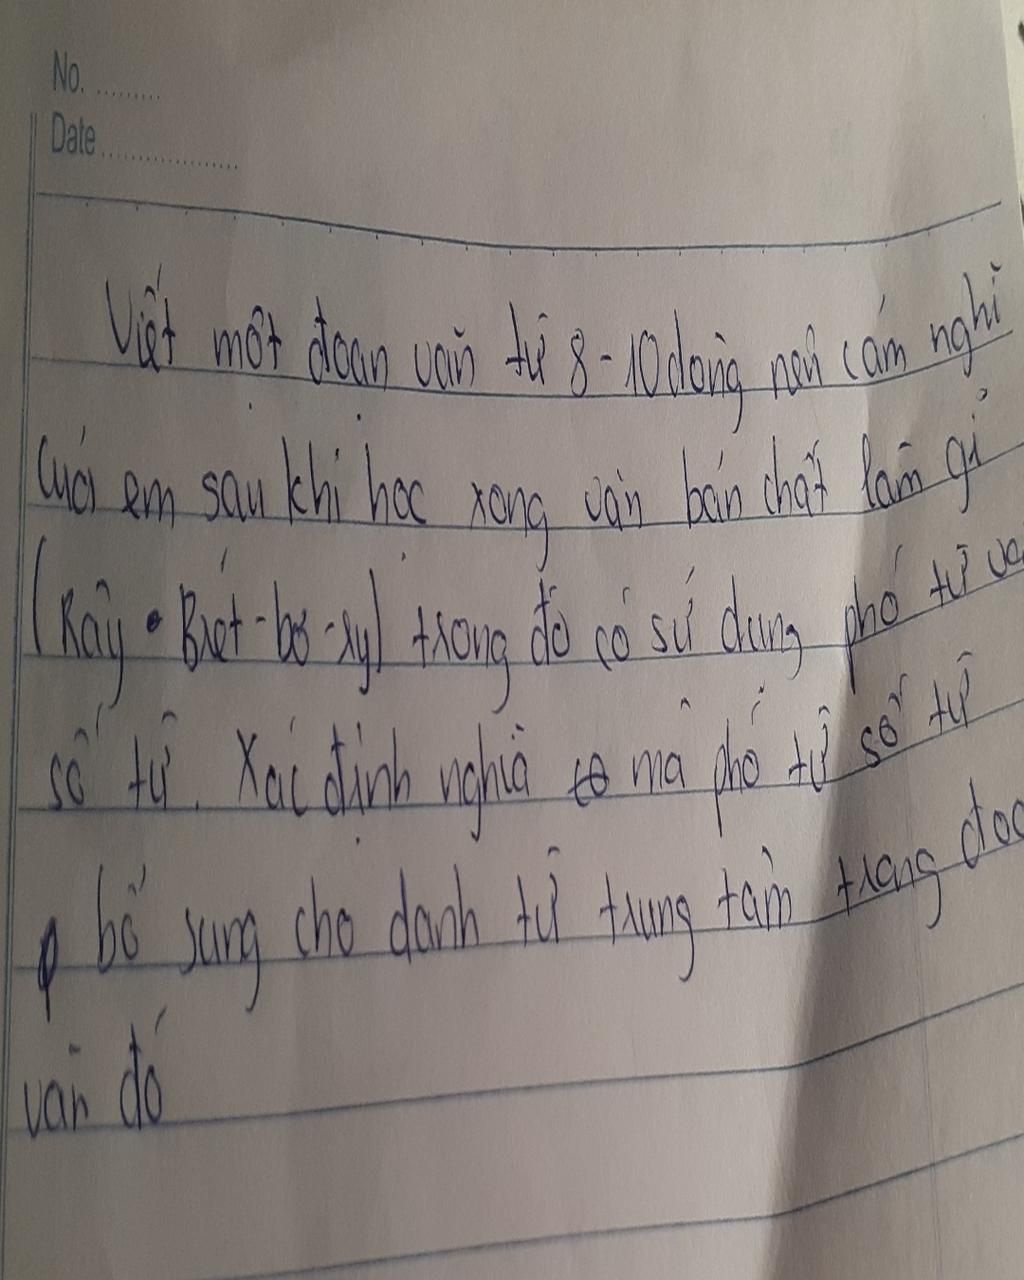 No. .........
Date ..................
Viết một đoạn văn từ 8-10 dòng nêu cảm nghĩ
của em sau khi học xong văn bản chất làm gỉ
(Rây • Brét-bơ-ry) trong đó có sử dụng phó từ và
số từ. Xác định nghĩa mà phó từ số từ
bổ sung cho danh từ trung tâm trong đoạ
văn đó